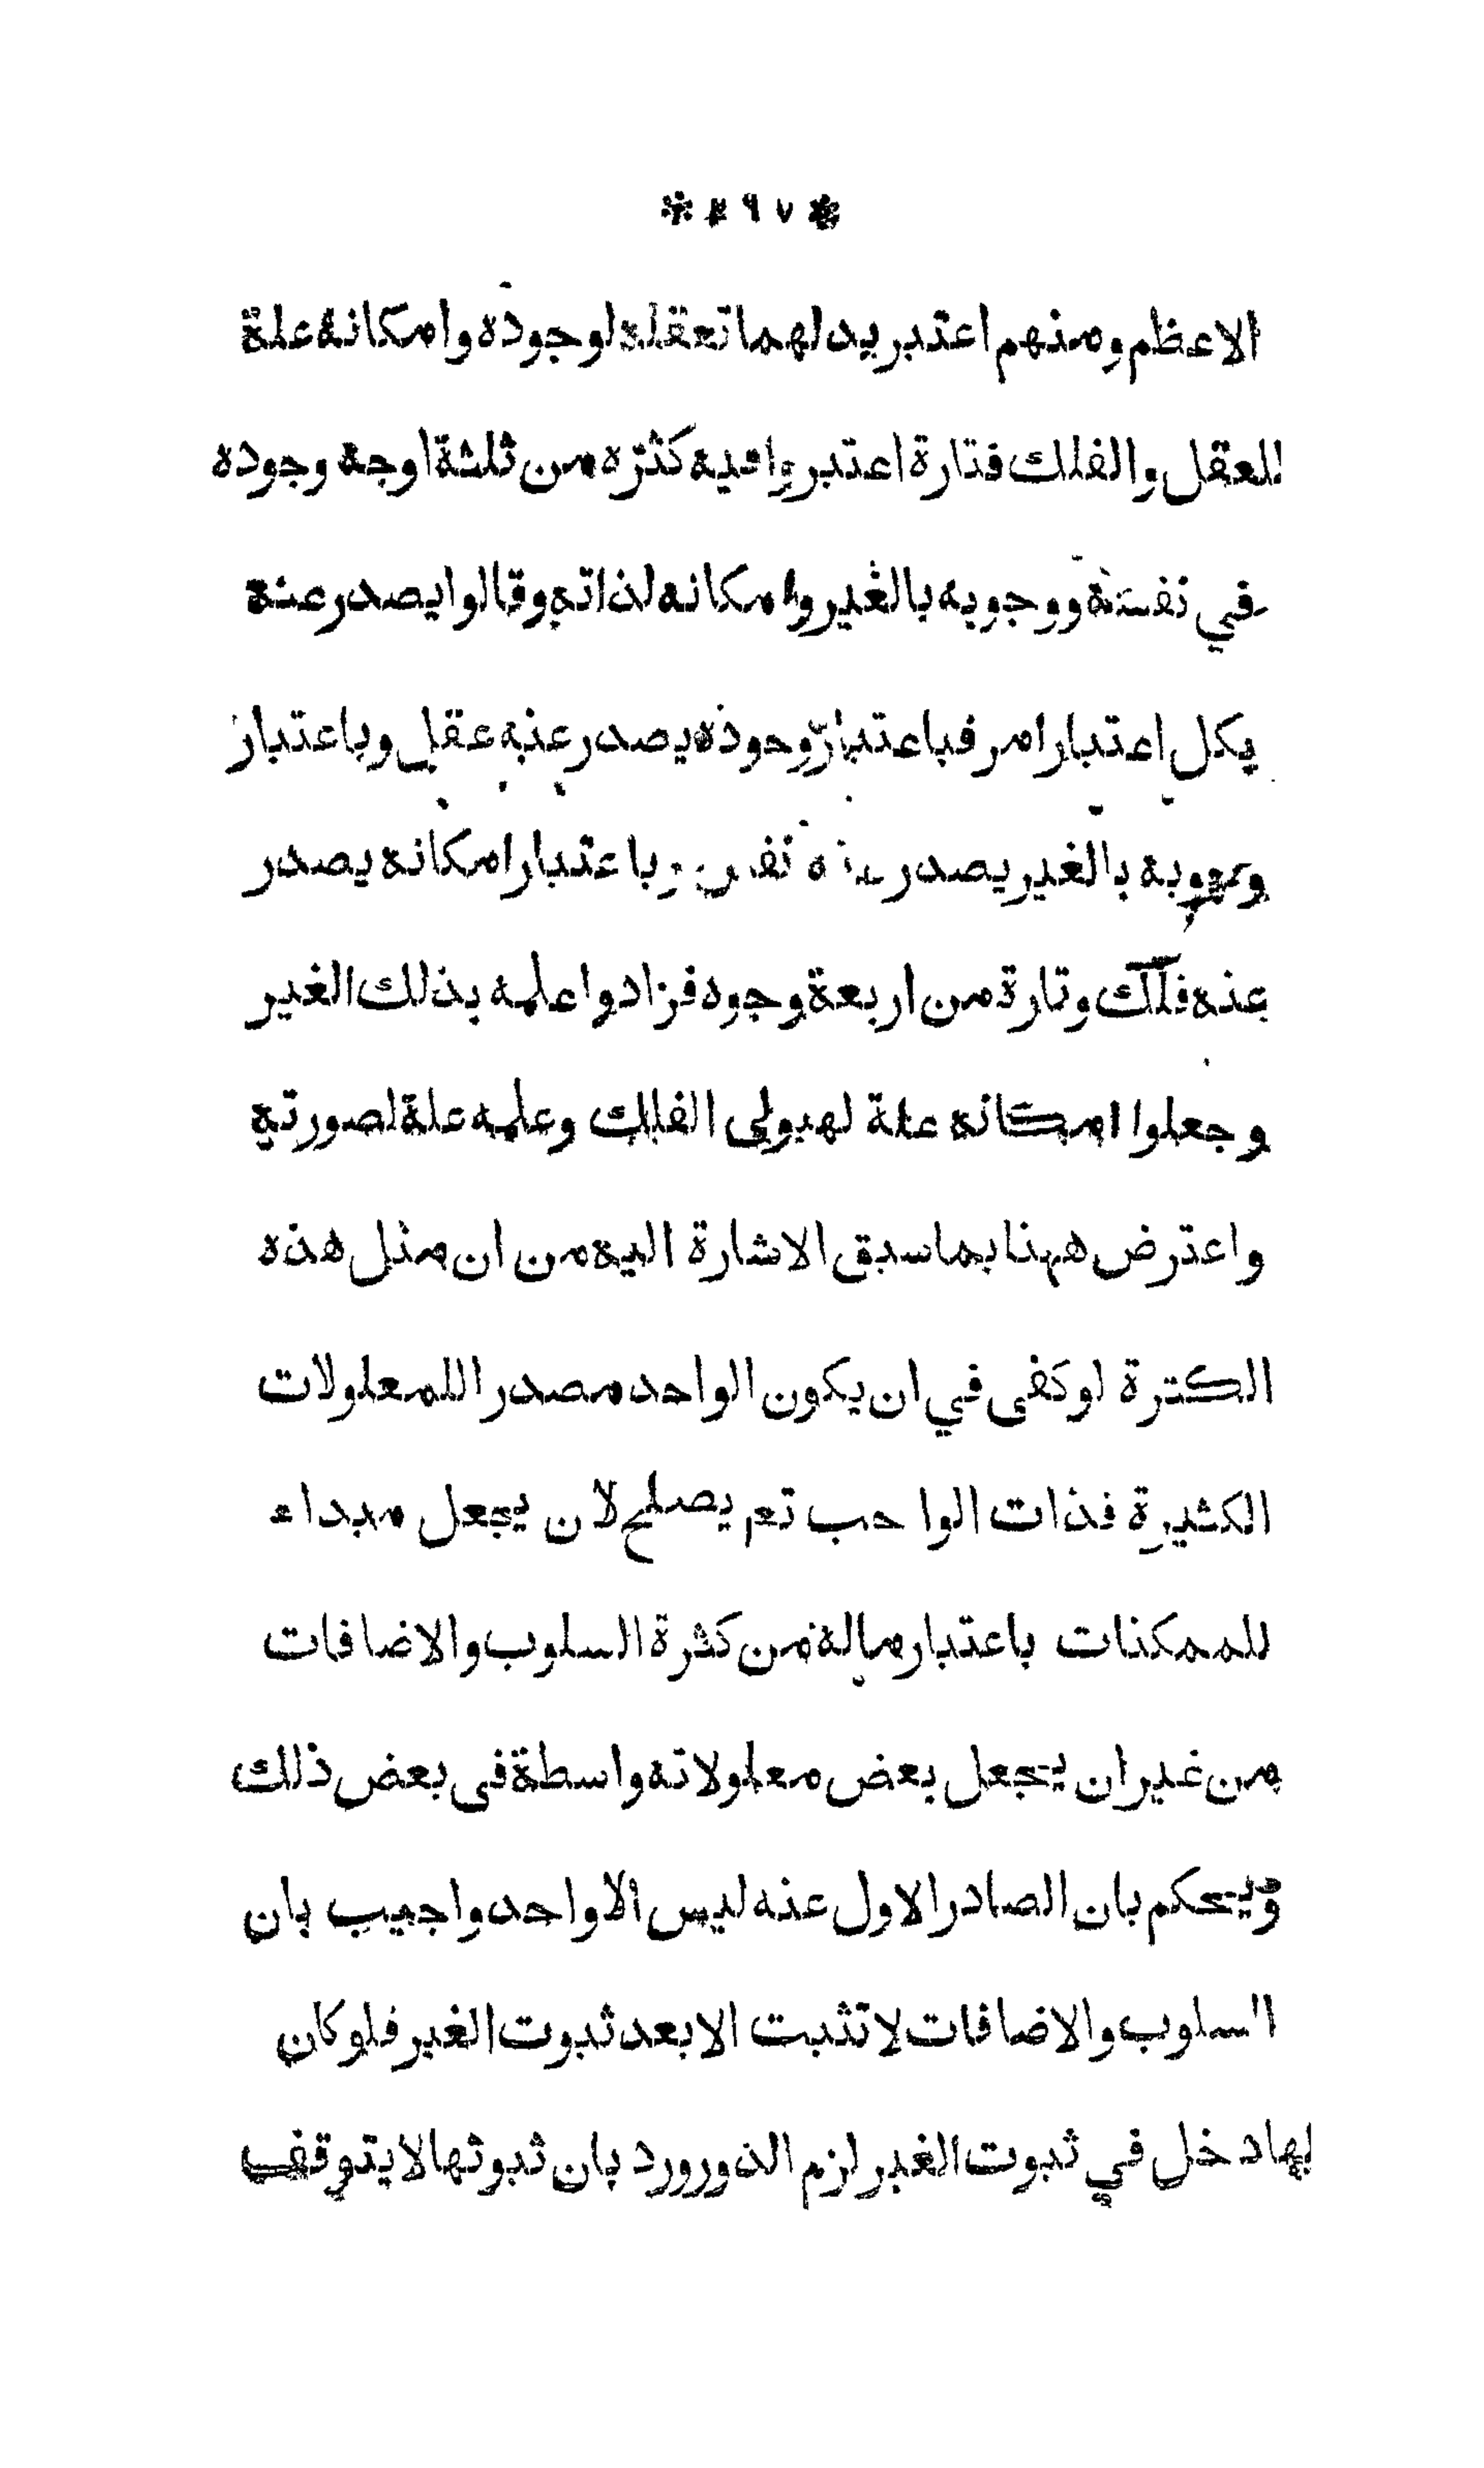 * ٤٩٧ *
الاعظم ومنهم اعتبر بدلهما تعقله لوجوده وامكانه علة
للعقل والفلك فتارة اعتبروا فيه كثره من ثلثة اوجه وجوده
في نفسه ووجوبه بالغير وامكانه لذاته وقالوا يصدر عنه
بكل اعتبار امر فباعتبار وجوده يصدر عنه عقل وباعتبار
وجوبه بالغير يصدر عنه نفس وباعتبار امكانه يصدر
عنه فلك وتارة من اربعة وجوه فزادوا علمه بذلك الغير
وجعلوا امكانه علة لهيولى الفلك وعلمه علة لصورته
واعترض ههنا بما سبق الاشارة اليه من ان مثل هذه
الكثرة لو كفى في ان يكون الواحد مصدرا للمعلولات
الكثيرة فذات الواجب تع يصلح لان يجعل مبداء
للممكنات باعتبار ماله من كثرة السلوب والاضافات
من غير ان يجعل بعض معلولاته واسطة فى بعض ذلك
ويحكم بان الصادر الاول عنه ليس الا واحد واجيب بان
السلوب والاضافات لا تثبت الا بعد ثبوت الغير فلو كان
لها دخل في ثبوت الغير لزم الدور ورد بان ثبوتها لا يتوقف